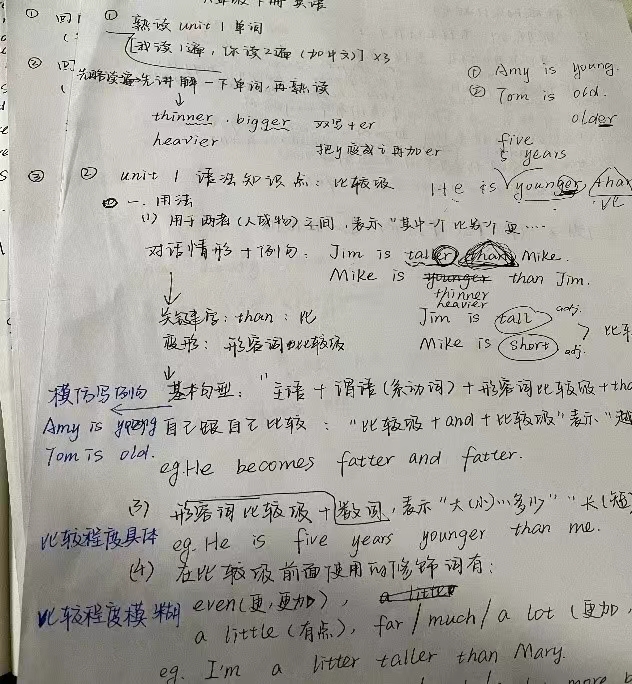 下册 英语
① 熟读 unit 1 单词
[我读1遍，你读2遍（加中文）]×3
先讲解一下单词，再熟读
① Amy is young.
② Tom is old.
older
thinner . bigger 双写+er
heavier 把y变成i再加er
five
5 years
③ ② unit 1 语法知识点：比较级
He is younger than
一、用法
(1) 用于两者（人或物）之间，表示"其中一个比另一个更……
对话情形+例句：Jim is taller than Mike.
Mike is younger than Jim.
thinner
heavier
关键字：than：比
变形：形容词的比较级
Jim is tall adj.
Mike is short adj.
模仿写例句 基本句型："主语+谓语（系动词）+形容词比较级+tha
Amy is young 自己跟自己比较："比较级+and+比较级"表示"越
Tom is old.
eg. He becomes fatter and fatter.
(3) 形容词比较级+数词，表示"大（小）…多少""长（短
比较程度具体 eg. He is five years younger than me.
(4) 在比较级前面使用的修饰词有：
比较程度模糊 even（更，更加），
a little（有点），far / much / a lot（更加，
eg. I'm a litter taller than Mary.